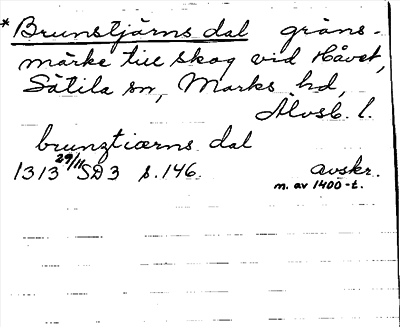 * Brunstjärns dal gräns-
märke till skog vid Håvet,
Sätila sn, Marks hd,
Älvsb. l.
brunztiærns dal
1313 29/11 SD 3 s. 146. avskr.
m. av 1400-t.